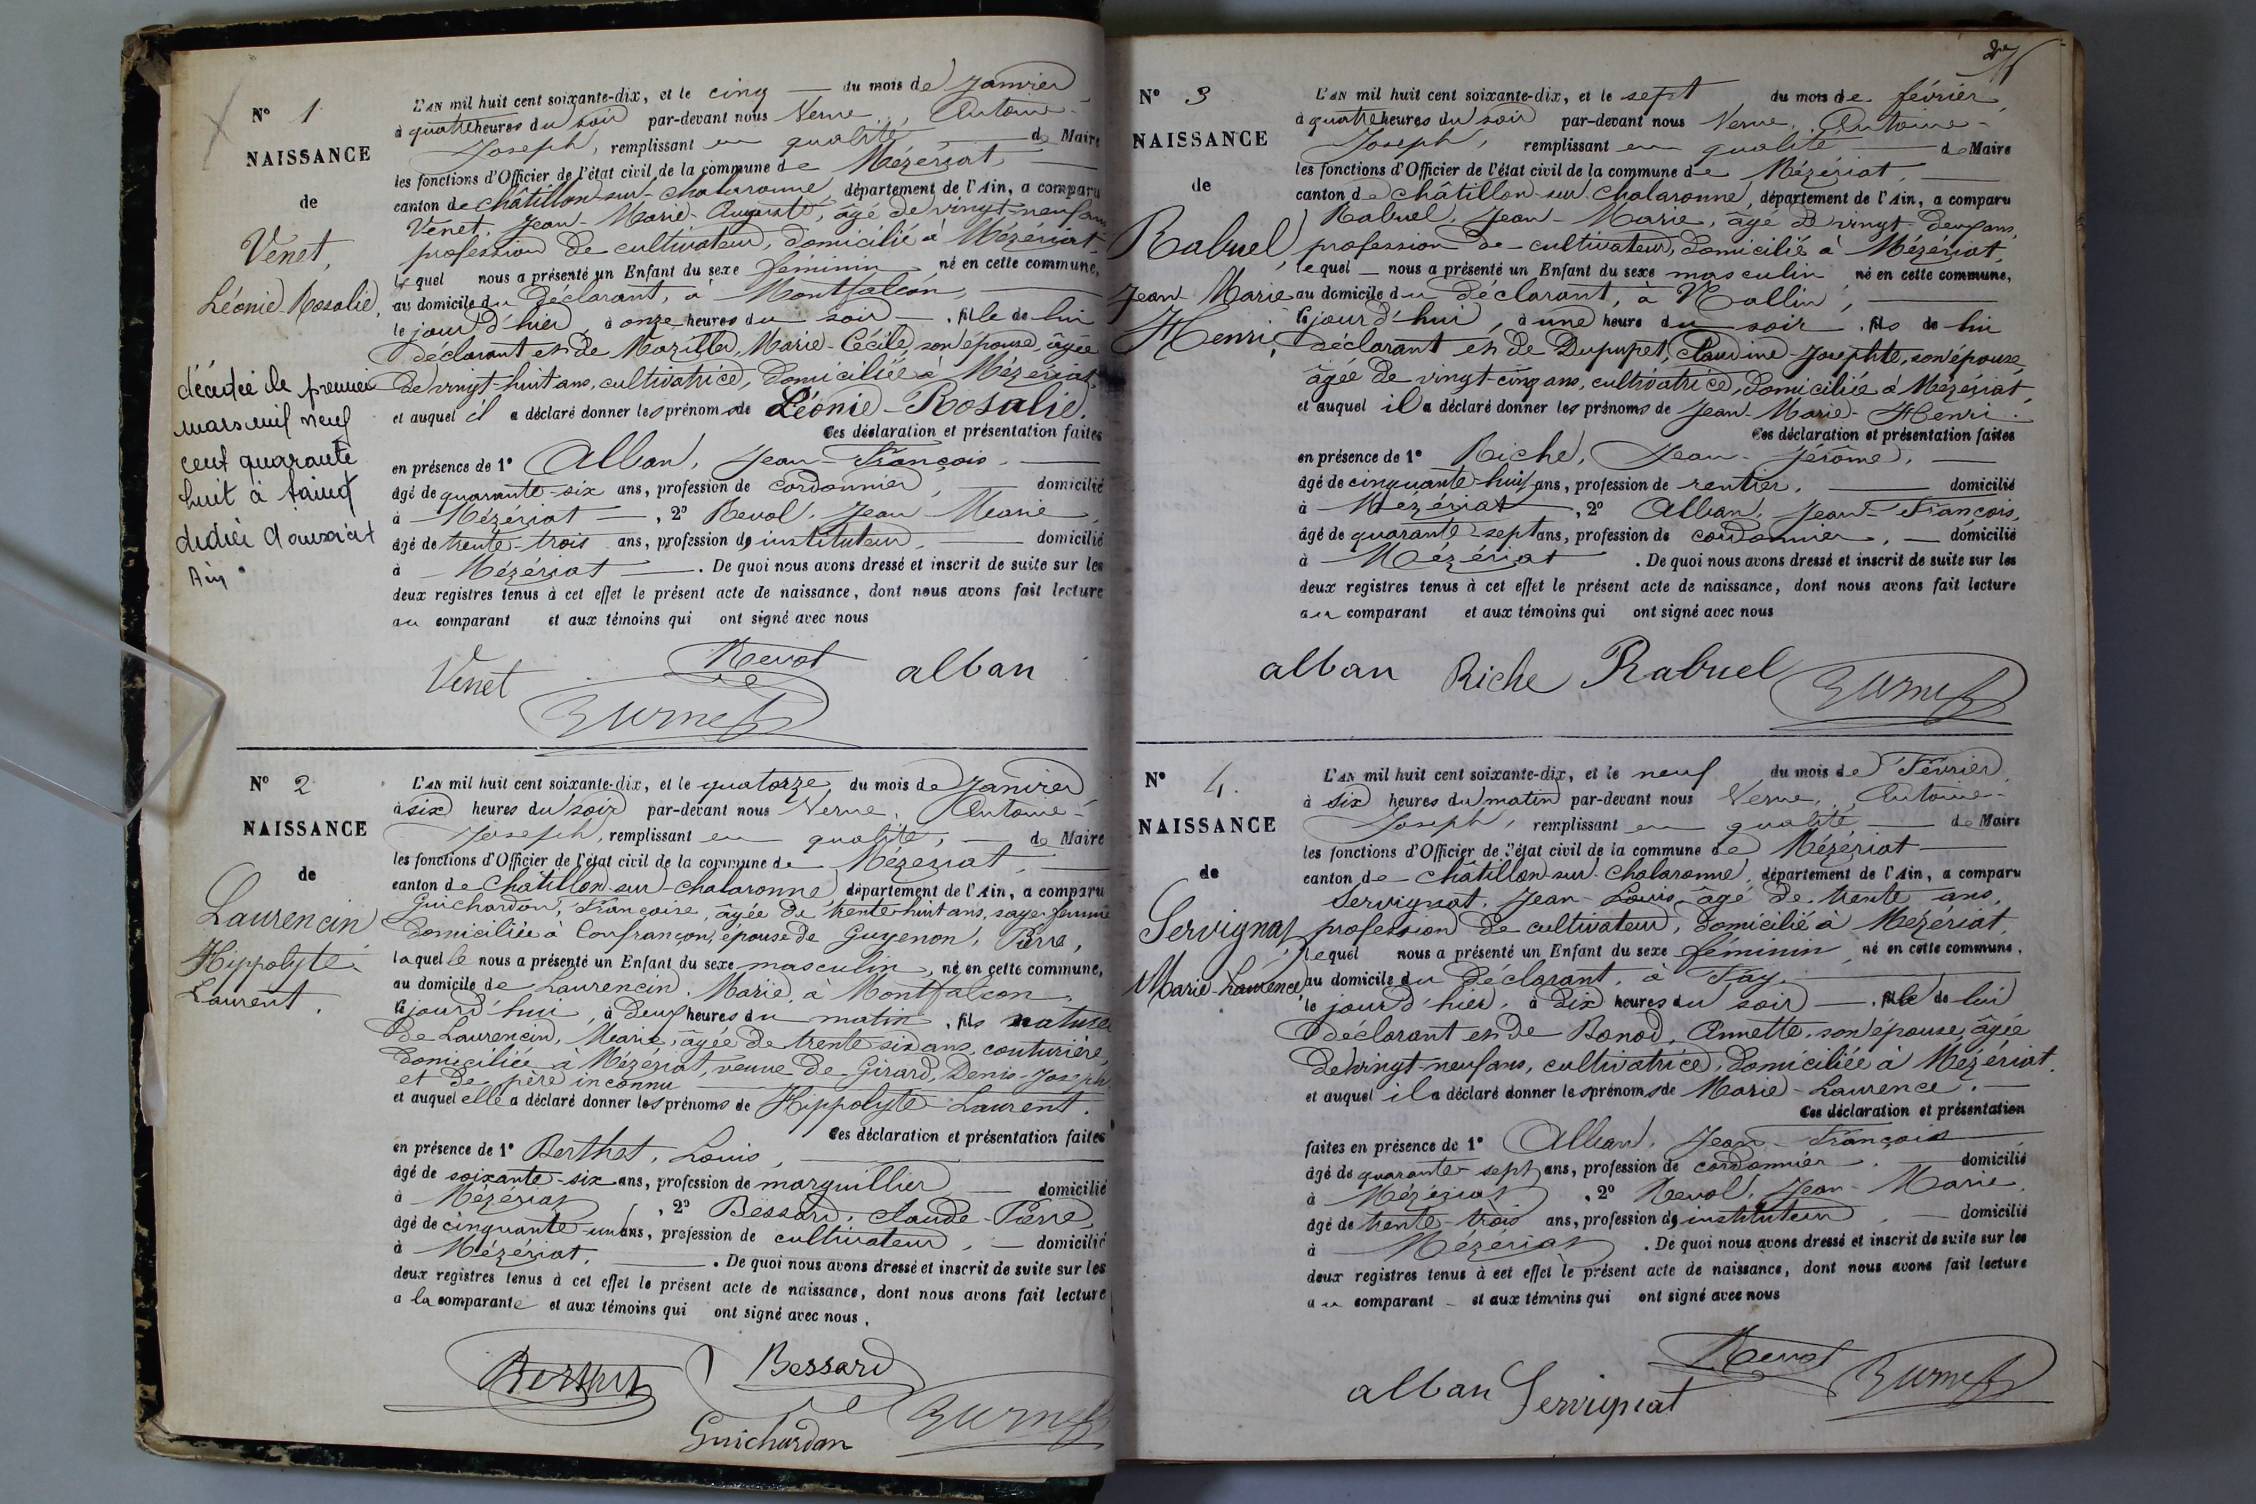 N° 1
NAISSANCE
de
Venet,
Léonie-Rosalie,
décédée le premier
mars mil neuf
cent quarante
huit à Saint
didier d'aussiat
Ain
L'AN mil huit cent soixante-dix, et le cinq du mois de Janvier
à quatre heures du soir par-devant nous Verne, Antoine-
Joseph, remplissant en qualité de Maire
les fonctions d'Officier de l'état civil de la commune de Mézériat,
canton de châtillon-sur-chalaronne, département de l'Ain, a comparu
Venet, Jean-Marie-Auguste, âgé de vingt-neuf ans
profession de cultivateur, domicilié à Mézériat
lequel nous a présenté un Enfant du sexe féminin né en cette commune,
au domicile du déclarant, à Montfalcon,
le jour d'hier, à onze heures du soir, fille de lui
déclarant et de Mazillu, Marie-Cécile son épouse, âgée
de vingt-huit ans, cultivatrice, domiciliée à Mézériat,
et auquel il a déclaré donner les prénoms de Léonie-Rosalie.
Ces déclaration et présentation faites
en présence de 1° Alban, Jean-François,
âgé de quarante-six ans, profession de cordonnier, domicilié
à Mézériat, 2° Revol, Jean Marie,
âgé de trente-trois ans, profession de instituteur, domicilié
à Mézériat. De quoi nous avons dressé et inscrit de suite sur les
deux registres tenus à cet effet le présent acte de naissance, dont nous avons fait lecture
au comparant et aux témoins qui ont signé avec nous
Venet Revol alban
N° 2
NAISSANCE
de
Laurencin
Hippolyte-
Laurent.
L'AN mil huit cent soixante-dix, et le quatorze du mois de Janvier
à six heures du soir par-devant nous Verne, Antoine-
Joseph, remplissant en qualité, de Maire
les fonctions d'Officier de l'état civil de la commune de Mézériat,
canton de châtillon-sur-chalaronne, département de l'Ain, a comparu
Guichardon, Françoise, âgée de trente huit ans, sage-femme
domiciliée à Confrançon, épouse de Guyenon, Pierre,
laquelle nous a présenté un Enfant du sexe masculin, né en cette commune,
au domicile de Laurencin, Marie, à Montfalcon,
le jour d'hui, à deux heures du matin, fils naturel
de Laurencin, Marie, âgée de trente six ans, couturière,
domiciliée à Mézériat, veuve de Girard, Denis-Joseph
et de père inconnu
et auquel elle a déclaré donner les prénoms de Hippolyte-Laurent.
Ces déclaration et présentation faites
en présence de 1° Berthet, Louis,
âgé de soixante-six ans, profession de marguillier domicilié
à Mézériat, 2° Bessard, claude-Pierre,
âgé de cinquante-un ans, profession de cultivateur, domicilié
à Mézériat, . De quoi nous avons dressé et inscrit de suite sur les
deux registres tenus à cet effet le présent acte de naissance, dont nous avons fait lecture
a la comparante et aux témoins qui ont signé avec nous.
Bessard
Guichardon
2
N° 3
NAISSANCE
de
Rabuel,
Jean-Marie
Henri,
L'AN mil huit cent soixante-dix, et le sept du mois de février,
à quatre heures du soir par-devant nous Verne, Antoine-
Joseph, remplissant en qualité de Maire
les fonctions d'Officier de l'état civil de la commune de Mézériat,
canton de châtillon-sur chalaronne, département de l'Ain, a comparu
Rabuel, Jean-Marie, âgé de vingt-deux ans,
profession de cultivateur, domicilié à Mézériat,
lequel nous a présenté un Enfant du sexe masculin né en cette commune,
au domicile du déclarant, à Vallin,
le jour d'hui, à une heure du soir, fils de lui
déclarant et de Dupupet, Claudine-Josephte, son épouse,
âgée de vingt-cinq ans, cultivatrice, domiciliée à Mézériat,
et auquel il a déclaré donner les prénoms de Jean-Marie-Henri.
Ces déclaration et présentation faites
en présence de 1° Riche, Jean-Jérôme,
âgé de cinquante-huit ans, profession de rentier, domicilié
à Mézériat, 2° Alban, Jean-François,
âgé de quarante-sept ans, profession de cordonnier, domicilié
à Mézériat. De quoi nous avons dressé et inscrit de suite sur les
deux registres tenus à cet effet le présent acte de naissance, dont nous avons fait lecture
au comparant et aux témoins qui ont signé avec nous
alban Riche Rabuel
N° 4.
NAISSANCE
de
Servignat,
Marie-Laurence,
L'AN mil huit cent soixante-dix, et le neuf du mois de Février,
à six heures du matin par-devant nous Verne, Antoine-
Joseph, remplissant en qualité de Maire
les fonctions d'Officier de l'état civil de la commune de Mézériat
canton de châtillon-sur-chalaronne, département de l'Ain, a comparu
Servignat, Jean-Louis, âgé de trente ans,
profession de cultivateur, domicilié à Mézériat,
lequel nous a présenté un Enfant du sexe féminin né en cette commune,
au domicile du déclarant, à Fay,
le jour d'hier, à dix heures du soir, fille de lui
déclarant et de Bonod, Annette, son épouse, âgée
de vingt-neuf ans, cultivatrice, domiciliée à Mézériat.
et auquel il a déclaré donner les prénoms de Marie-Laurence.
Ces déclaration et présentation
faites en présence de 1° Alban, Jean-François
âgé de quarante-sept ans, profession de cordonnier, domicilié
à Mézériat, 2° Revol, Jean-Marie,
âgé de trente-trois ans, profession de instituteur, domicilié
à Mézériat. De quoi nous avons dressé et inscrit de suite sur les
deux registres tenus à cet effet le présent acte de naissance, dont nous avons fait lecture
au comparant et aux témoins qui ont signé avec nous
Revol
alban Servignat